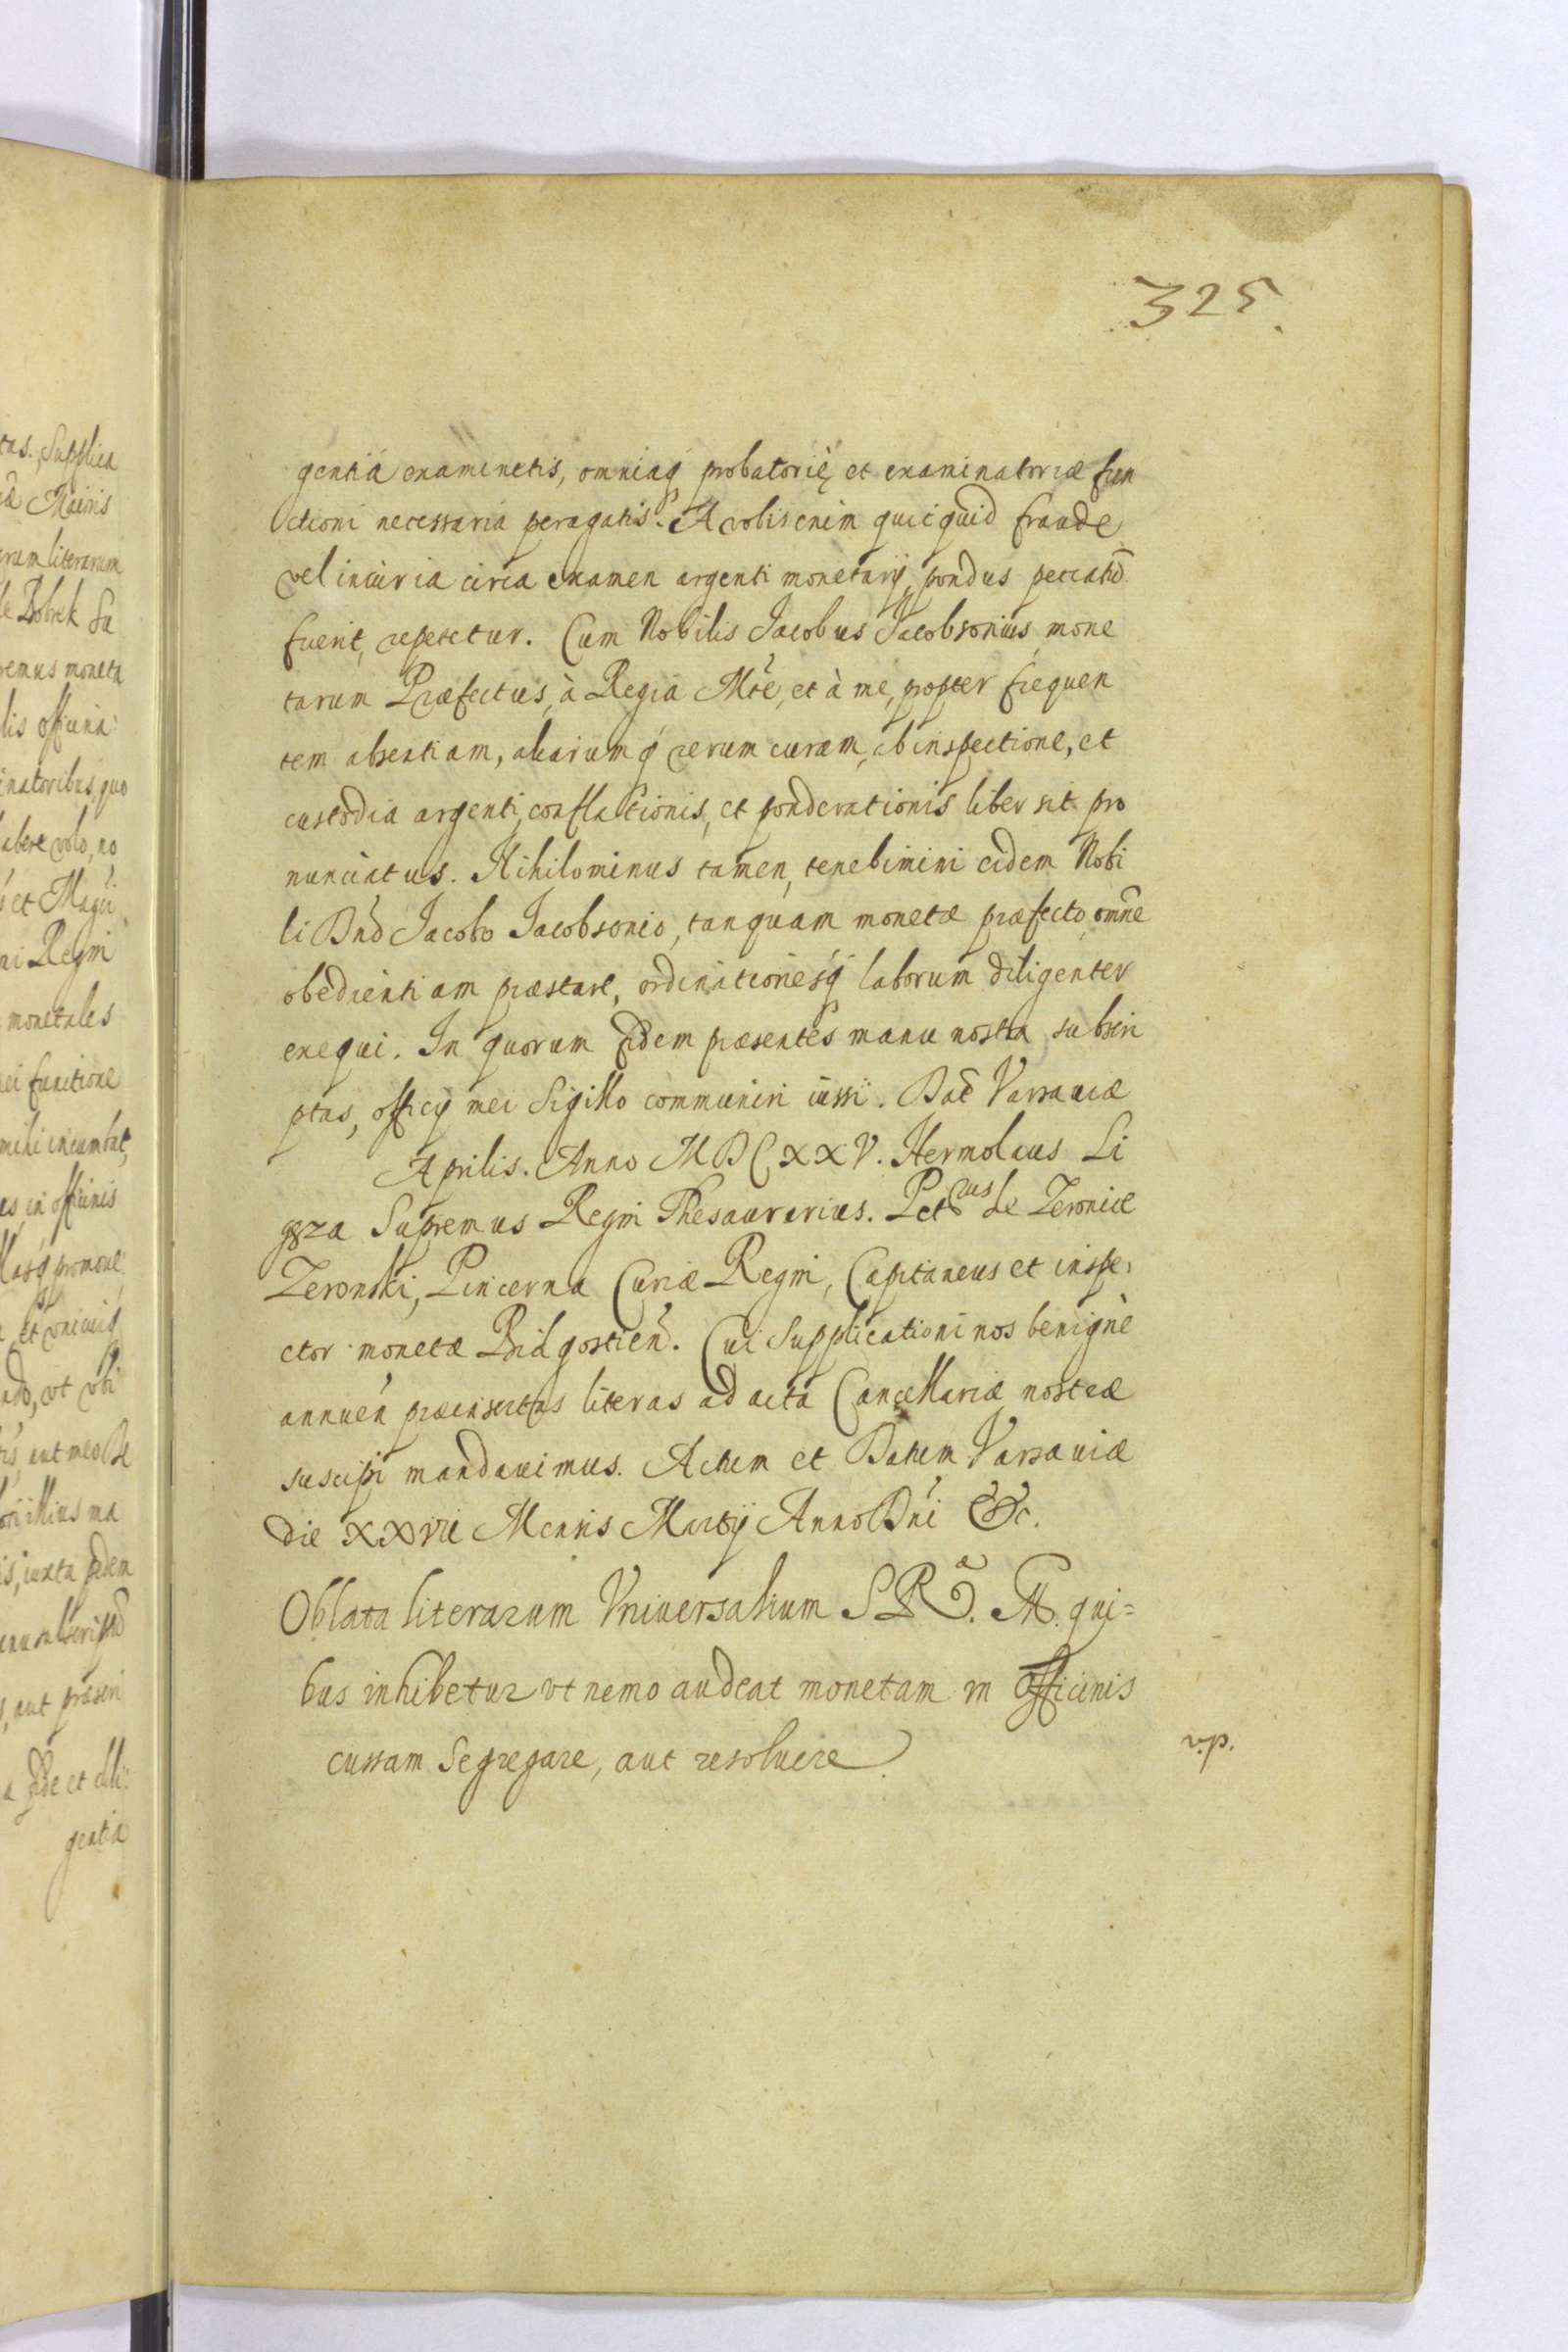 325.
gentiá examinetis, omniaq́ probatorię, et examinatoriæ fun
ctioni necessaria peragatis. A vobis enim quicquid fraude
vel incuria circa examen argenti monetarij, pondus peccatū
fuerit, repetetur. Cum Nobilis Jacobus Jacobsonius mone
tarum Præfectus, à Regia Mtē, et à me, propter frequen
tem absentiam, aliarumq́ rerum curam, ab inspectione, et
custodia argenti, conflationis, et ponderationis liber sit pro
nunciatus. Nihilominus tamen, tenebimini eidem Nobi
li Dnō Jacobo Jacobsonio, tanquam monetæ præfecto, omnē
obedientiam præstare, ordinationesq́ laborum diligenter
exequi. In quorum fidem præsentes manu nostra subscri
ptas, officij mei Sigillo communiri iussi. Datē Varsauiæ
Aprilis. Anno MDCXXV. Hermolaus Li
gęza Supremus Regni Thesaurarius. Petrus de Zeronice
Zeronski, Pincerna Curiæ Regni, Capitaneus et inspe,
ctor monetæ Bidgostien̄. Cui Supplicationi nos benignè
annuen̄ præinsertas literas ad acta Cancellariæ nostræ
suscipi mandauimus. Actum et Datum Varsauiæ
die XXVII Mensis Martij Anno Dnī &c.
Oblata literarum Vniuersalium S R. M. qui=
bus inhibetur vt nemo audeat monetam in officinis
cussam segregare, aut resoluere
tus. Supplica
Maioris
rum literarum
de Bobrek Su
remus moneta
lis officina:
inatoribus, quo
abere volo, no
et Magci
ni Regni
monetales
ei functione
mihi incumbat,
as in officinis
llasq́ promoue
ado, vt vbi
aut meo
illius ma
is, iuxta fidem
anu subscriptū
, aut præsen
a fide et dili:
gentia